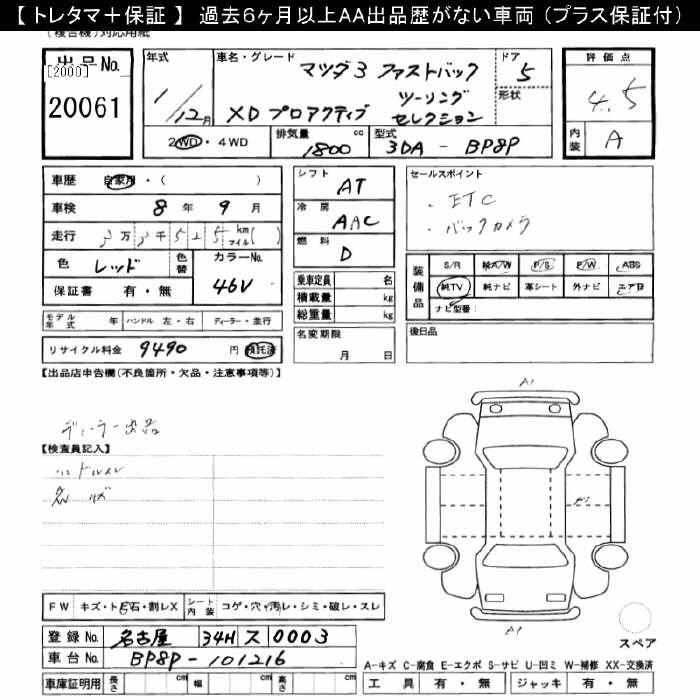 【 トレタマ＋保証 】 過去６ヶ月以上ＡＡ出品歴がない車両 （プラス保証付）
(複合機)対応用紙
出品No.
[2000]
20061
年式
1/12月
車名・グレード
マツダ3 ファストバック
XD プロアクティブ ツーリング セレクション
ドア
5
形状
評価点
4.5
内装
A
2WD・4WD
排気量
1800 cc
型式
3DA - BP8P
車歴 自家用・( )
車検 8 年 9 月
走行 3万3千525 km マイル( )
色 レッド
色替
カラーNo.
46V
保証書 有・無
シフト
AT
冷房
AAC
燃料
D
乗車定員 名
積載量 kg
総重量 kg
セールスポイント
・ETC
・バックカメラ
装備品
S/R 純A/W P/S P/W ABS
純TV 純ナビ 革シート 外ナビ エアB
ナビ型番:
モデル年式 年 ハンドル 左・右 ディーラー・並行
リサイクル料金 9490 円 預託済
名変期限
月 日
後日品
【出品店申告欄(不良箇所・欠品・注意事項等)】
ディーラー出品
【検査員記入】
A1
A1
FW キズ・トビ石・割レX シート内装 コゲ・穴・汚レ・シミ・破レ・スレ
スペア
登録No. 名古屋 34H ス 0003
車台No. BP8P-101216
A-キズ C-腐食 E-エクボ S-サビ U-凹ミ W-補修 XX-交換済
車庫証明用 長さ cm 幅 cm 高さ cm
工具 有・無 ジャッキ 有・無